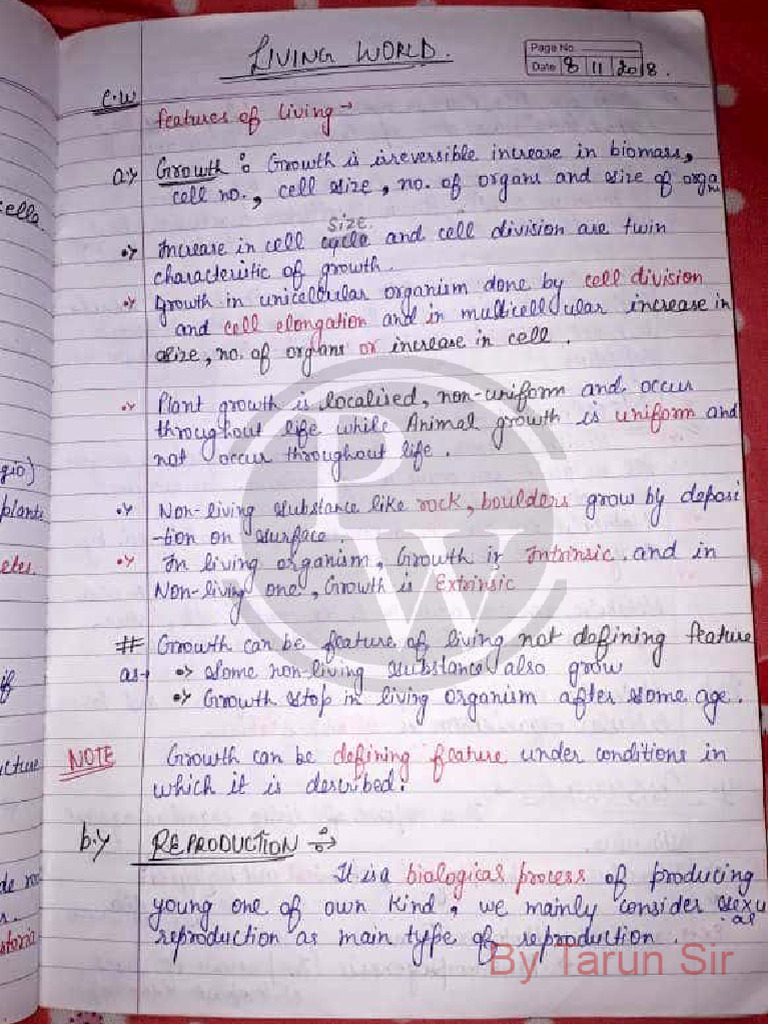 LIVING WORLD.
Page No.
Date 8 11 2018.
C.W
features of living →
a.> Growth : Growth is irreversible increase in biomass,
cell no., cell size, no. of organs and size of organ
size
•> Increase in cell cycle and cell division are twin
characteristic of growth.
•> Growth in unicellular organism done by cell division
and cell elongation and in multicellular increase in
size, no. of organs or increase in cell.
•> Plant growth is localised, non-uniform and occur
throughout life while Animal growth is uniform and
not occur throughout life.
•> Non-living substance like rock, boulders grow by deposi
-tion on surface.
•> In living organism, Growth is Intrinsic and in
Non-living one, Growth is Extrinsic
# Growth can be feature of living not defining feature
as→ •> some non-living substance also grow
•> Growth stop in living organism after some age.
NOTE Growth can be defining feature under conditions in
which it is described.
b.> REPRODUCTION →
It is a biological process of producing
young one of own kind, we mainly consider sexu
al
reproduction as main type of reproduction.
By Tarun Sir
PW
cells.
gio)
plants
etes.
if
cture
de
s.